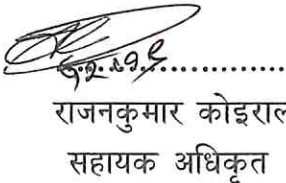 राजनकुमार कोइराल
सहायक अधिकृत